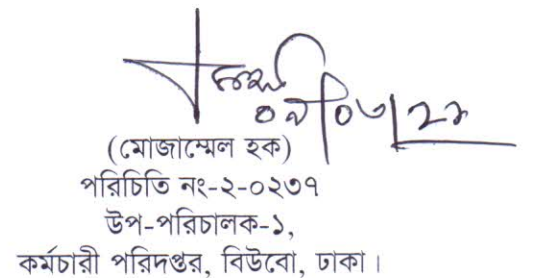 (মোজাম্মেল হক)
পরিচিতি নং-২-০২৩৭
উপ-পরিচালক-১,
কর্মচারী পরিদপ্তর, বিউবো, ঢাকা।